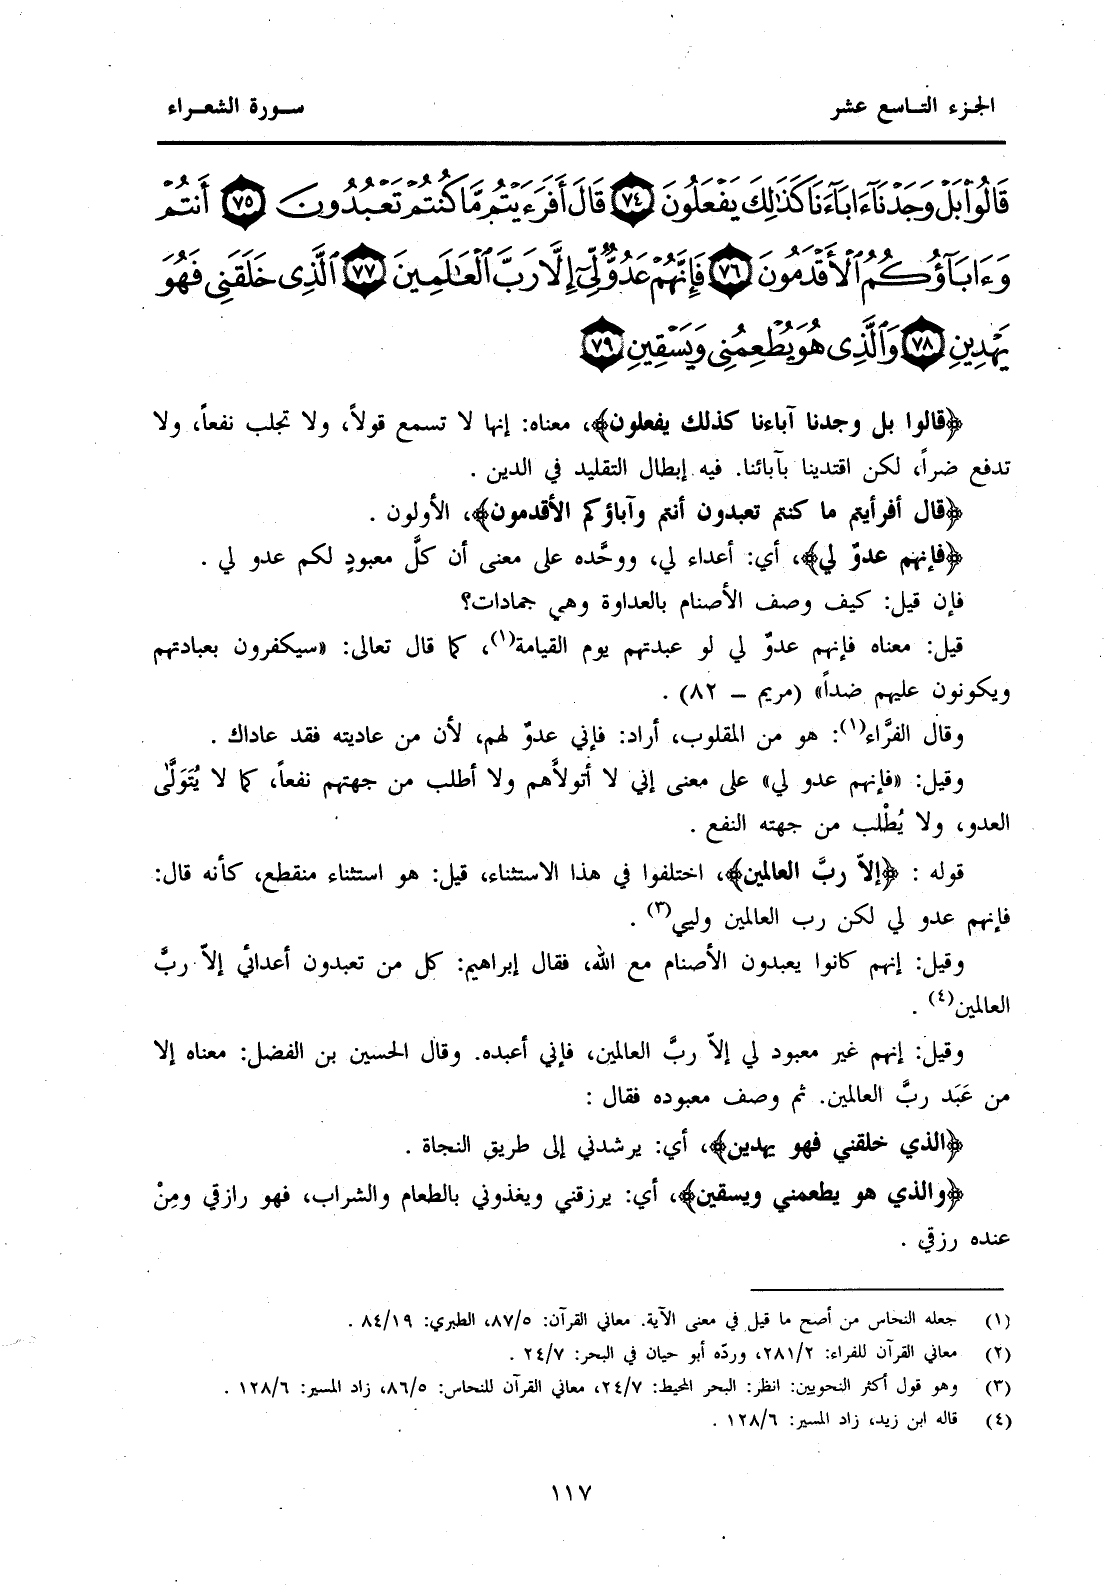 الجزء التاسع عشر
سورة الشعراء
قَالُوا۟ بَلْ وَجَدْنَآ ءَابَآءَنَا كَذَٰلِكَ يَفْعَلُونَ ﴿٧٤﴾ قَالَ أَفَرَءَيْتُم مَّا كُنتُمْ تَعْبُدُونَ ﴿٧٥﴾ أَنتُمْ
وَءَابَآؤُكُمُ ٱلْأَقْدَمُونَ ﴿٧٦﴾ فَإِنَّهُمْ عَدُوٌّ لِّىٓ إِلَّا رَبَّ ٱلْعَٰلَمِينَ ﴿٧٧﴾ ٱلَّذِى خَلَقَنِى فَهُوَ
يَهْدِينِ ﴿٧٨﴾ وَٱلَّذِى هُوَ يُطْعِمُنِى وَيَسْقِينِ ﴿٧٩﴾
﴿قالوا بل وجدنا آباءنا كذلك يفعلون﴾، معناه: إنها لا تسمع قولاً، ولا تجلب نفعاً، ولا
تدفع ضراً، لكن اقتدينا بآبائنا. فيه إبطال التقليد في الدين .
﴿قال أفرأيتم ما كنتم تعبدون أنتم وآباؤكم الأقدمون﴾، الأولون .
﴿فإنهم عدوٌ لي﴾، أي: أعداء لي، ووحَّده على معنى أن كلَّ معبودٍ لكم عدو لي .
فإن قيل: كيف وصف الأصنام بالعداوة وهي جمادات؟
قيل: معناه فإنهم عدوٌ لي لو عبدتهم يوم القيامة(١)، كما قال تعالى: «سيكفرون بعبادتهم
ويكونون عليهم ضداً» (مريم – ٨٢) .
وقال الفرَّاء(١): هو من المقلوب، أراد: فإني عدوٌ لهم، لأن من عاديته فقد عاداك .
وقيل: «فإنهم عدو لي» على معنى إني لا أتولاَّهم ولا أطلب من جهتهم نفعاً، كما لا يُتَوَلَّى
العدو، ولا يُطْلب من جهته النفع .
قوله : ﴿إلاّ ربَّ العالمين﴾، اختلفوا في هذا الاستثناء، قيل: هو استثناء منقطع، كأنه قال:
فإنهم عدو لي لكن رب العالمين وليي(٣) .
وقيل: إنهم كانوا يعبدون الأصنام مع الله، فقال إبراهيم: كل من تعبدون أعدائي إلاّ ربَّ
العالمين(٤) .
وقيل: إنهم غير معبود لي إلاّ ربَّ العالمين، فإني أعبده. وقال الحسين بن الفضل: معناه إلا
من عَبَد ربَّ العالمين. ثم وصف معبوده فقال :
﴿الذي خلقني فهو يهدين﴾، أي: يرشدني إلى طريق النجاة .
﴿والذي هو يطعمني ويسقين﴾، أي: يرزقني ويغذوني بالطعام والشراب، فهو رازقي ومِنْ
عنده رزقي .
(١) جعله النحاس من أصح ما قيل في معنى الآية. معاني القرآن: ٨٧/٥، الطبري: ٨٤/١٩ .
(٢) معاني القرآن للفراء: ٢٨١/٢، وردّه أبو حيان في البحر: ٢٤/٧ .
(٣) وهو قول أكثر النحويين: انظر: البحر المحيط: ٢٤/٧، معاني القرآن للنحاس: ٨٦/٥، زاد المسير: ١٢٨/٦ .
(٤) قاله ابن زيد، زاد المسير: ١٢٨/٦ .
١١٧